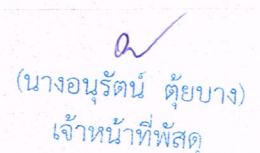 (นางอนุรัตน์ ตุ้ยบาง)
เจ้าหน้าที่พัสดุ